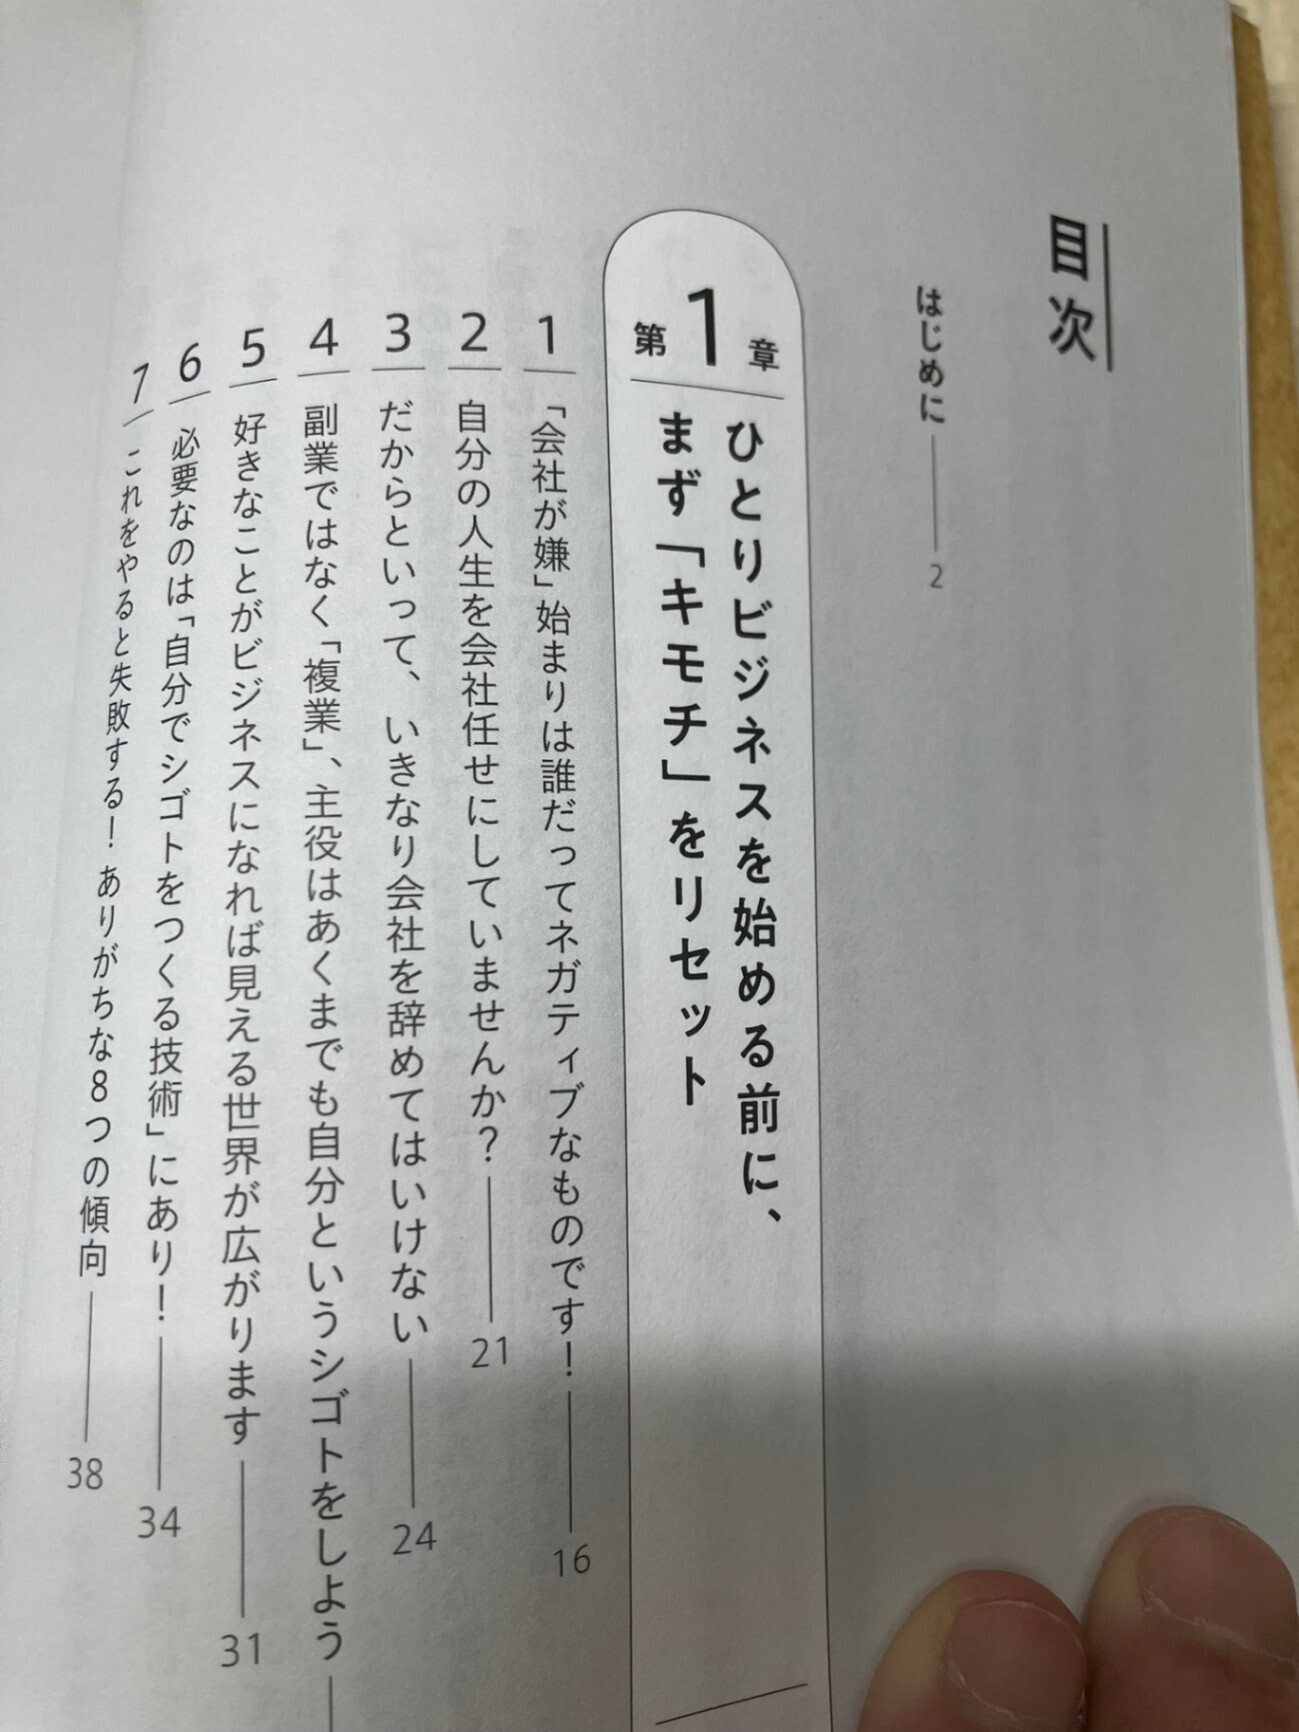 目次
はじめに 2
第1章
ひとりビジネスを始める前に、
まず「キモチ」をリセット
1 「会社が嫌」始まりは誰だってネガティブなものです! 16
2 自分の人生を会社任せにしていませんか? 21
3 だからといって、いきなり会社を辞めてはいけない 24
4 副業ではなく「複業」、主役はあくまでも自分というシゴトをしよう
5 好きなことがビジネスになれば見える世界が広がります 31
6 必要なのは「自分でシゴトをつくる技術」にあり! 34
7 これをやると失敗する! ありがちな8つの傾向 38